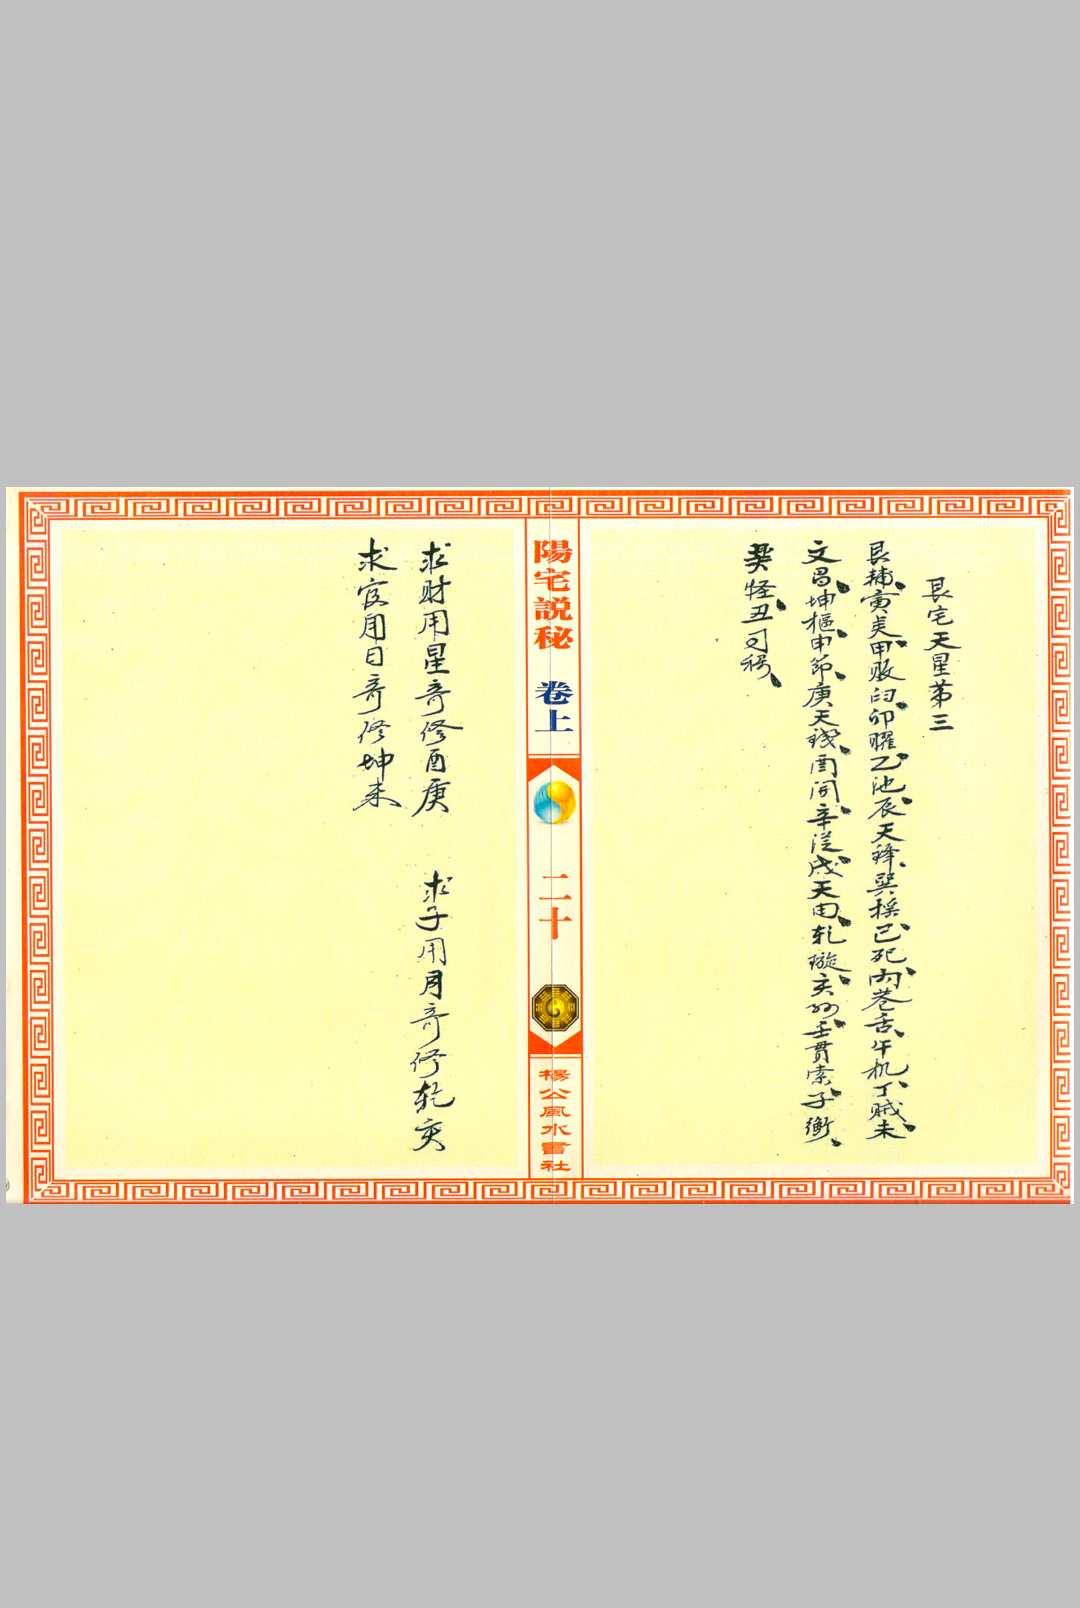 艮宅天星第三
艮輔寅矣甲敗臼卯曜乙池辰天鋒巽搖巳死丙卷舌午机丁賊未
文昌坤樞申節庚天錢酉開辛從戌天田乾璇亥壬貫索子衡
癸怪丑司
陽宅説秘 卷上
二十
楊公風水書社
求財用星奇修酉庚 求子用月奇修乾亥
求官用日奇修坤未